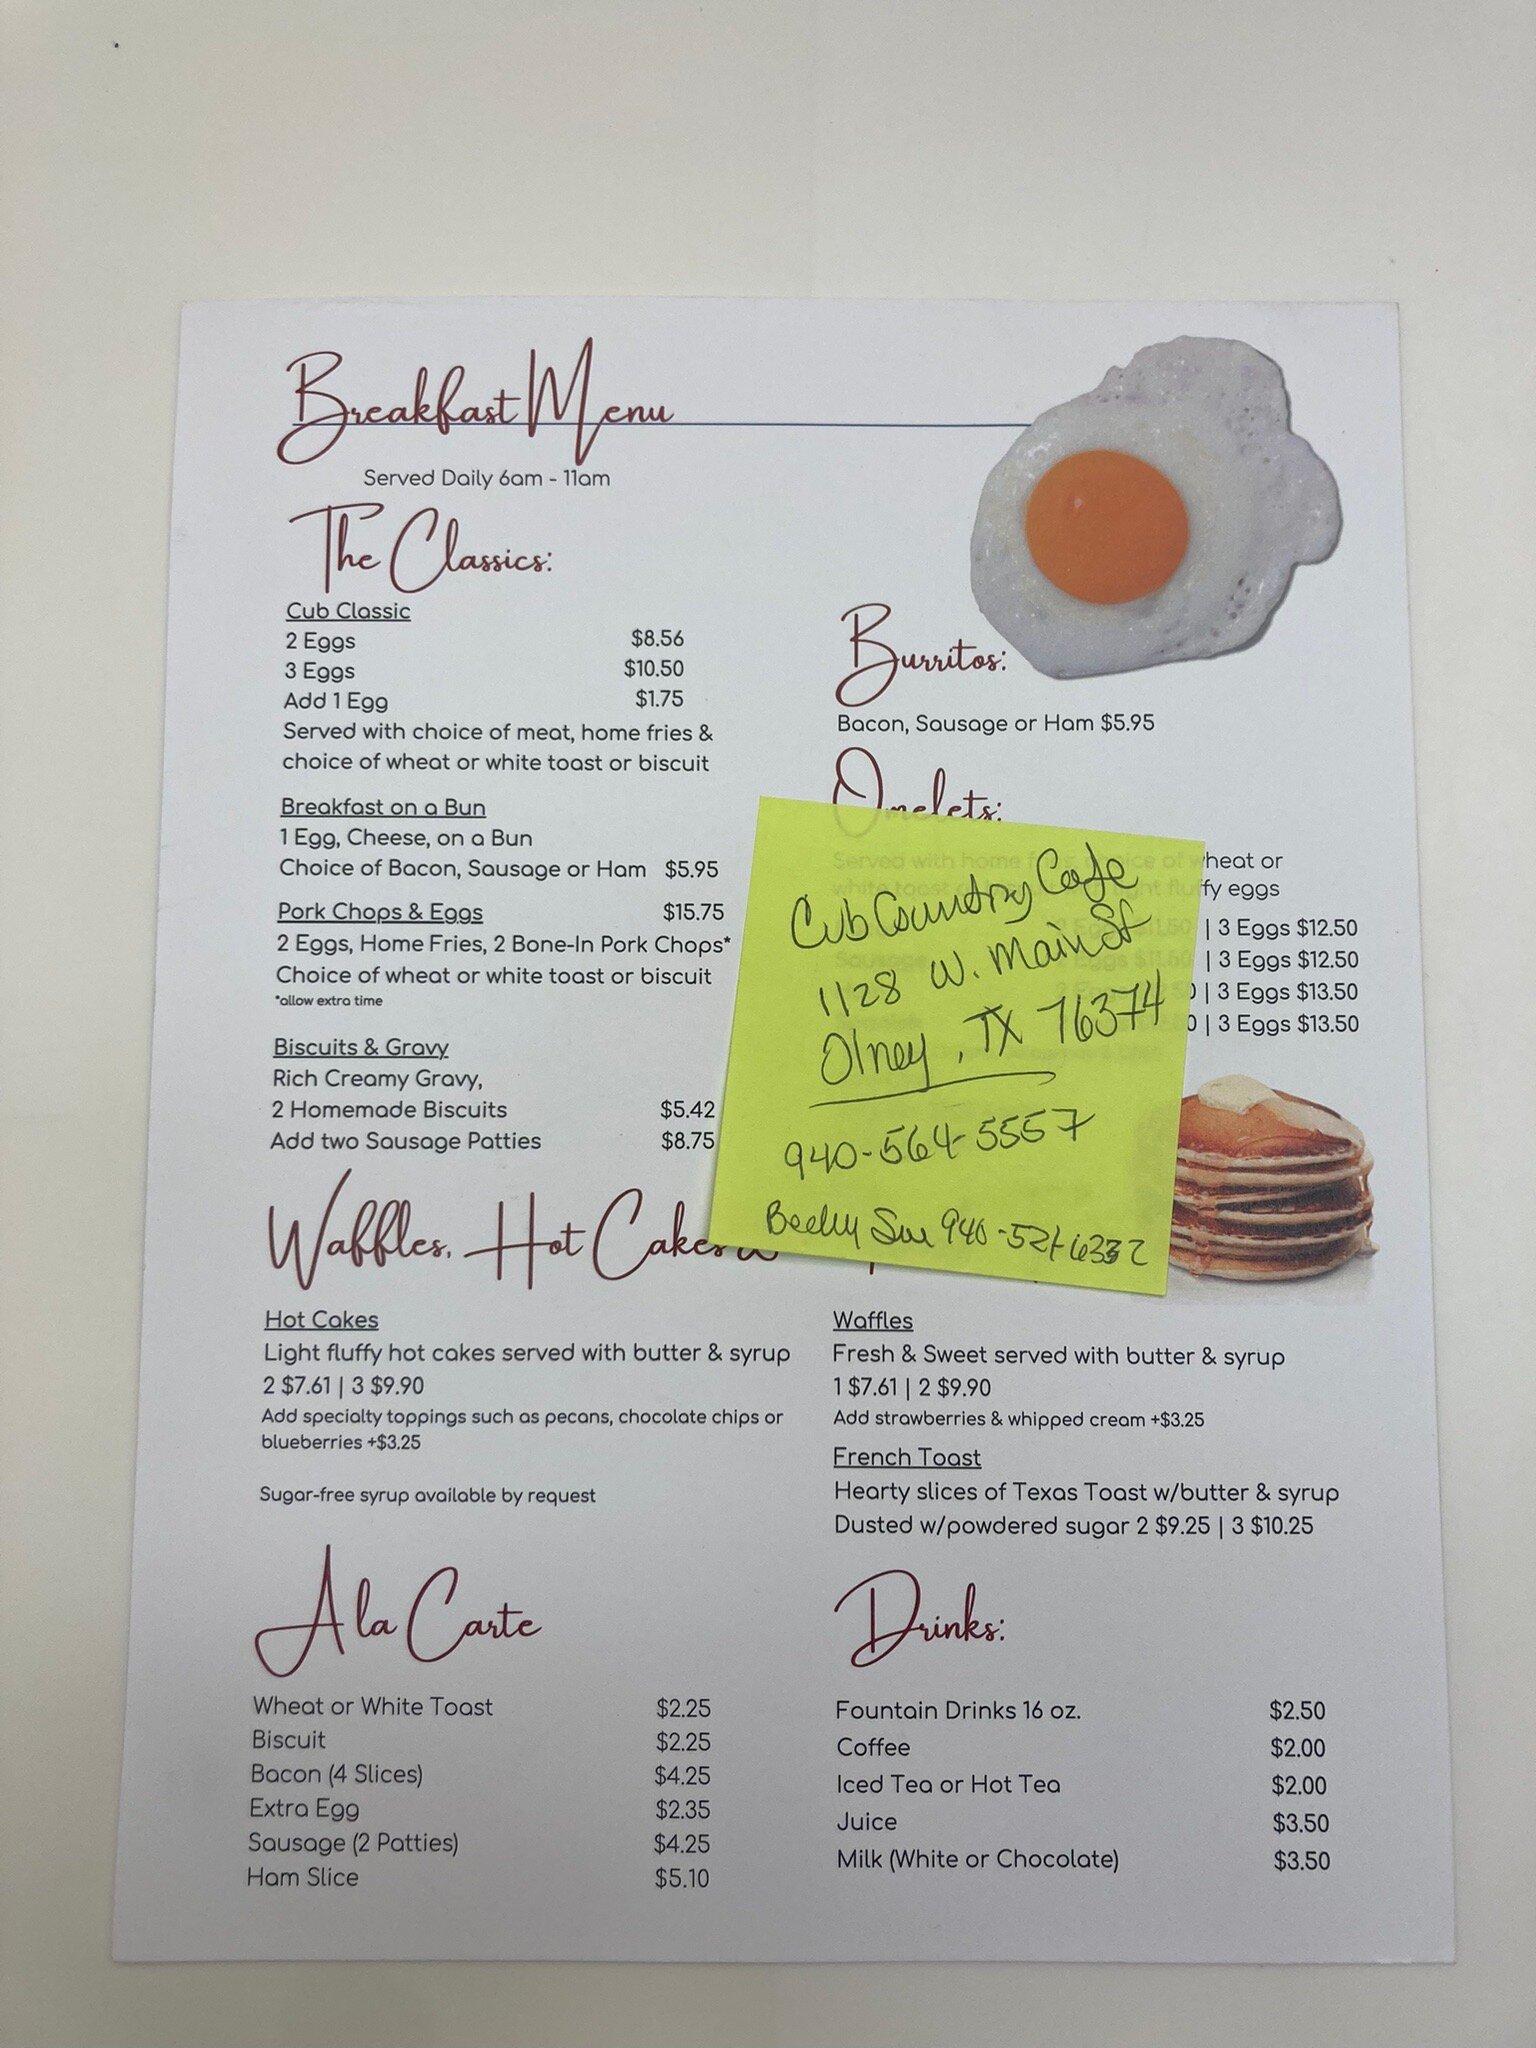 Breakfast Menu
Served Daily 6am - 11am
The Classics:
Cub Classic
2 Eggs $8.56
3 Eggs $10.50
Add 1 Egg $1.75
Served with choice of meat, home fries &
choice of wheat or white toast or biscuit
Breakfast on a Bun
1 Egg, Cheese, on a Bun
Choice of Bacon, Sausage or Ham $5.95
Pork Chops & Eggs $15.75
2 Eggs, Home Fries, 2 Bone-In Pork Chops*
Choice of wheat or white toast or biscuit
*allow extra time
Biscuits & Gravy
Rich Creamy Gravy,
2 Homemade Biscuits $5.42
Add two Sausage Patties $8.75
Burritos:
Bacon, Sausage or Ham $5.95
Omelets:
Served with home wheat or
fluffy eggs
| 3 Eggs $12.50
| 3 Eggs $12.50
| 3 Eggs $13.50
| 3 Eggs $13.50
Cub Country Cafe
1128 W. Main St
Olney, TX 76374
940-564-5557
Sue 940-521-6332
Waffles, Hot Cakes &
Hot Cakes
Light fluffy hot cakes served with butter & syrup
2 $7.61 | 3 $9.90
Add specialty toppings such as pecans, chocolate chips or
blueberries +$3.25
Sugar-free syrup available by request
Waffles
Fresh & Sweet served with butter & syrup
1 $7.61 | 2 $9.90
Add strawberries & whipped cream +$3.25
French Toast
Hearty slices of Texas Toast w/butter & syrup
Dusted w/powdered sugar 2 $9.25 | 3 $10.25
Ala Carte
Wheat or White Toast $2.25
Biscuit $2.25
Bacon (4 Slices) $4.25
Extra Egg $2.35
Sausage (2 Patties) $4.25
Ham Slice $5.10
Drinks:
Fountain Drinks 16 oz. $2.50
Coffee $2.00
Iced Tea or Hot Tea $2.00
Juice $3.50
Milk (White or Chocolate) $3.50